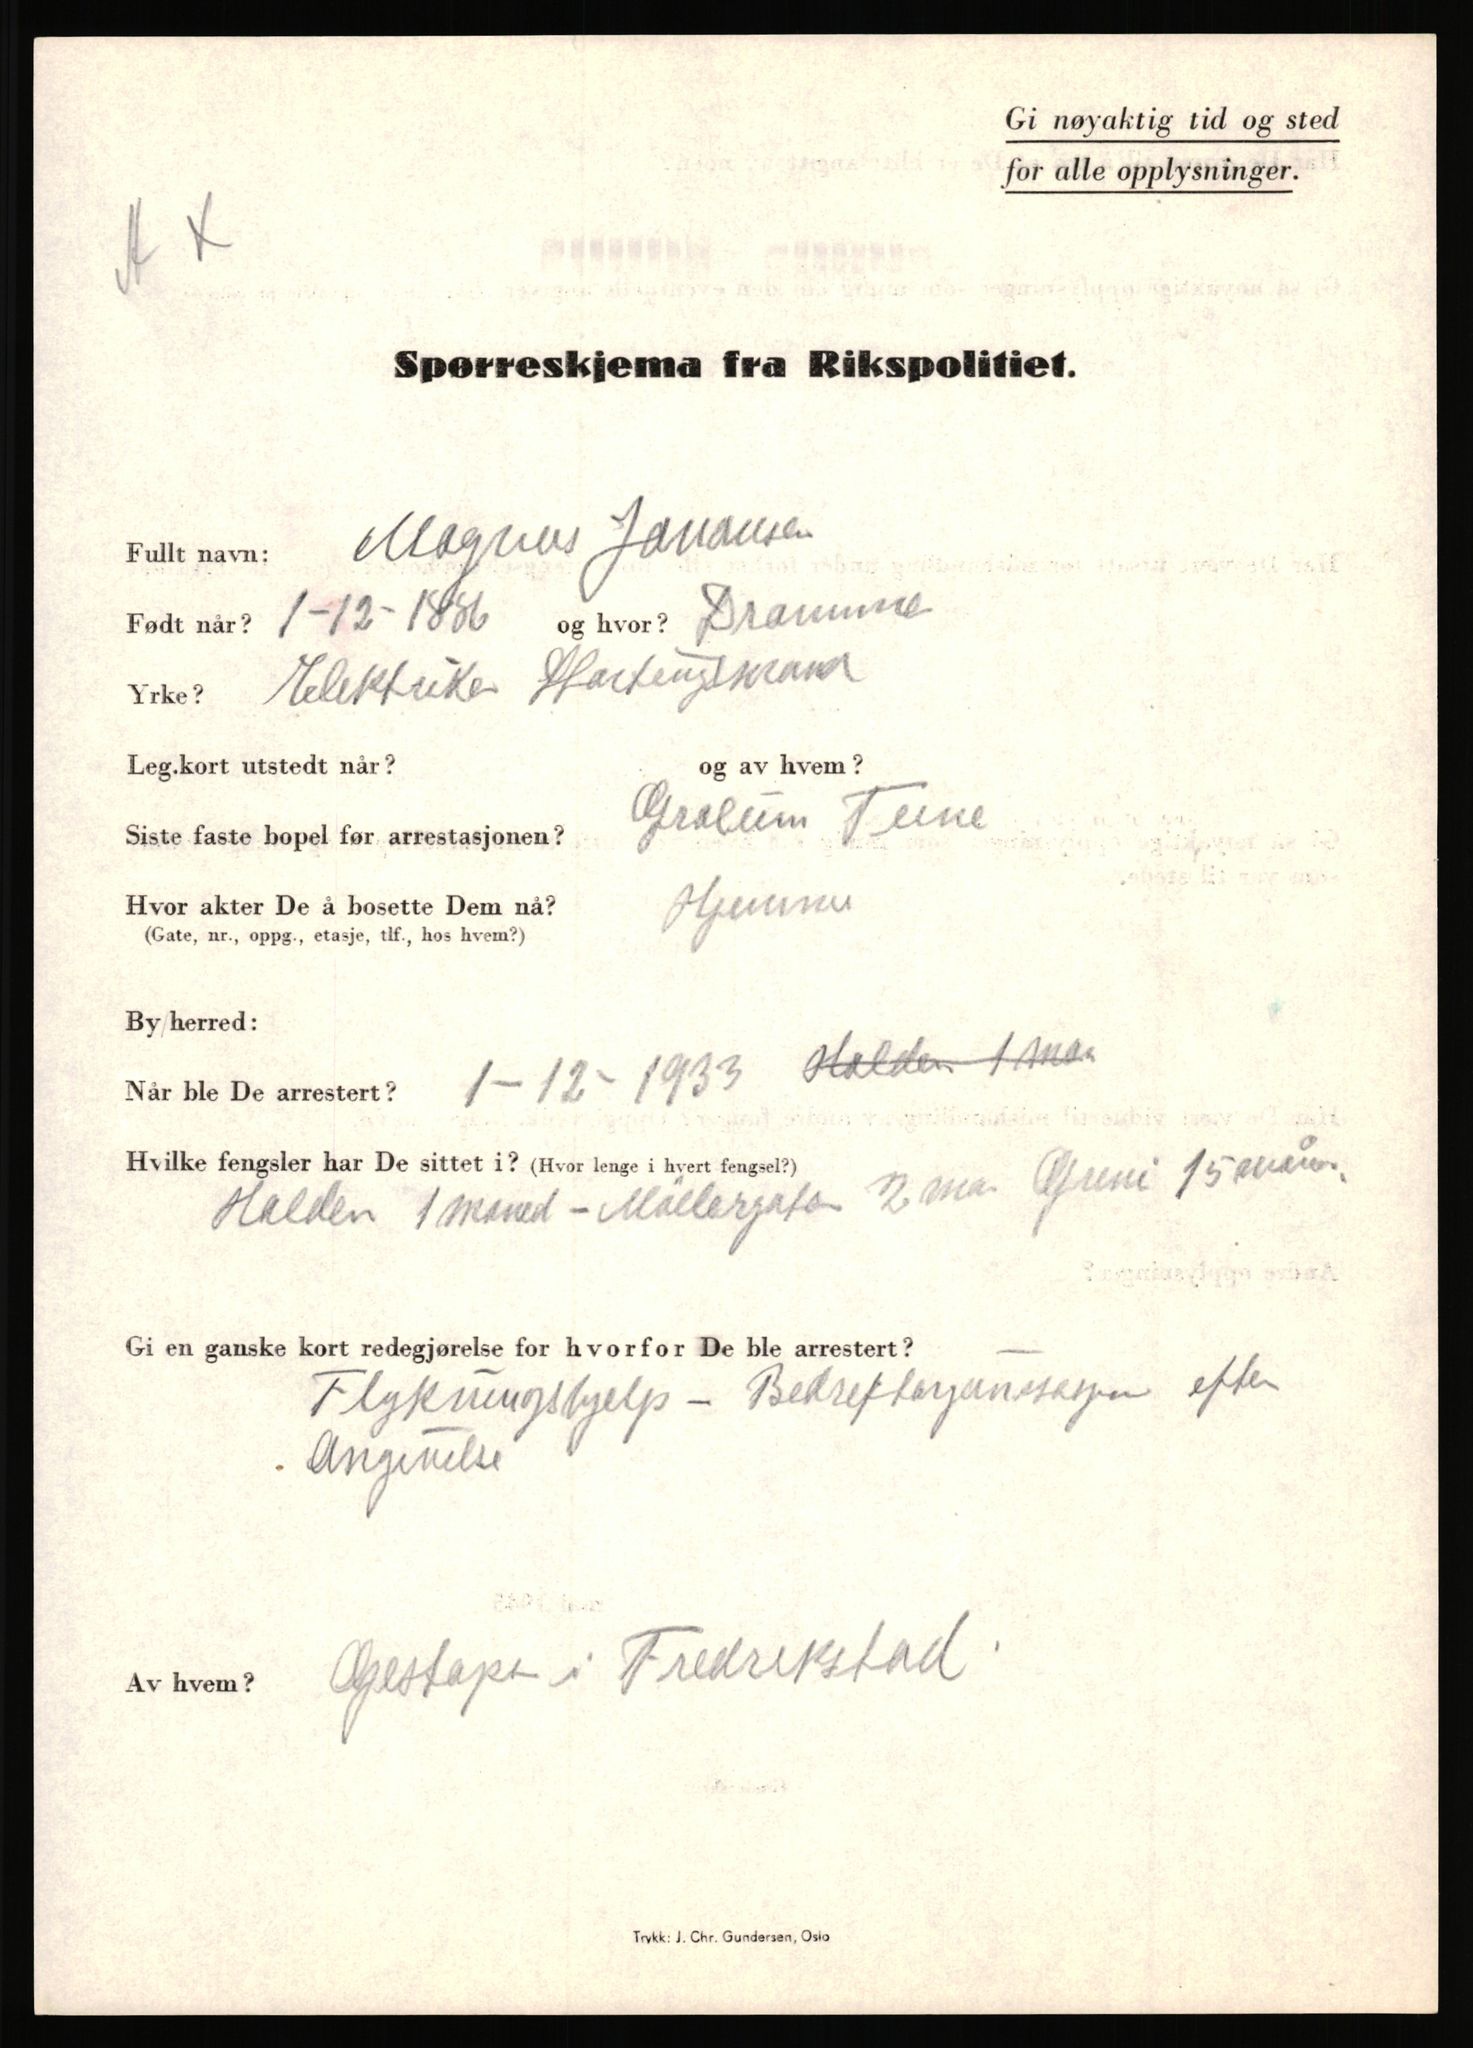 Gi nøyaktig tid og sted
for alle opplysninger.
Spørreskjema fra Rikspolitiet.
Fullt navn: Magnus Johansen
Født når? 1-12-1886 og hvor? Drammen
Yrke? Elektriker
Leg.kort utstedt når? og av hvem?
Siste faste bopel før arrestasjonen? Grålum Tune
Hvor akter De å bosette Dem nå? Hjemme
(Gate, nr., oppg., etasje, tlf., hos hvem?)
By/herred:
Når ble De arrestert? 1-12-1933 Halden 1 man
Hvilke fengsler har De sittet i? (Hvor lenge i hvert fengsel?)
Halden 1 måned - Möllergaten 2 man Grini 15 mån.
Gi en ganske kort redegjørelse for hvorfor De ble arrestert?
Flyktningshjelp - Bedriftorganisasjon efter
Angivelse
Av hvem? Gestapo i Fredrikstad.
Trykk: J. Chr. Gundersen, Oslo